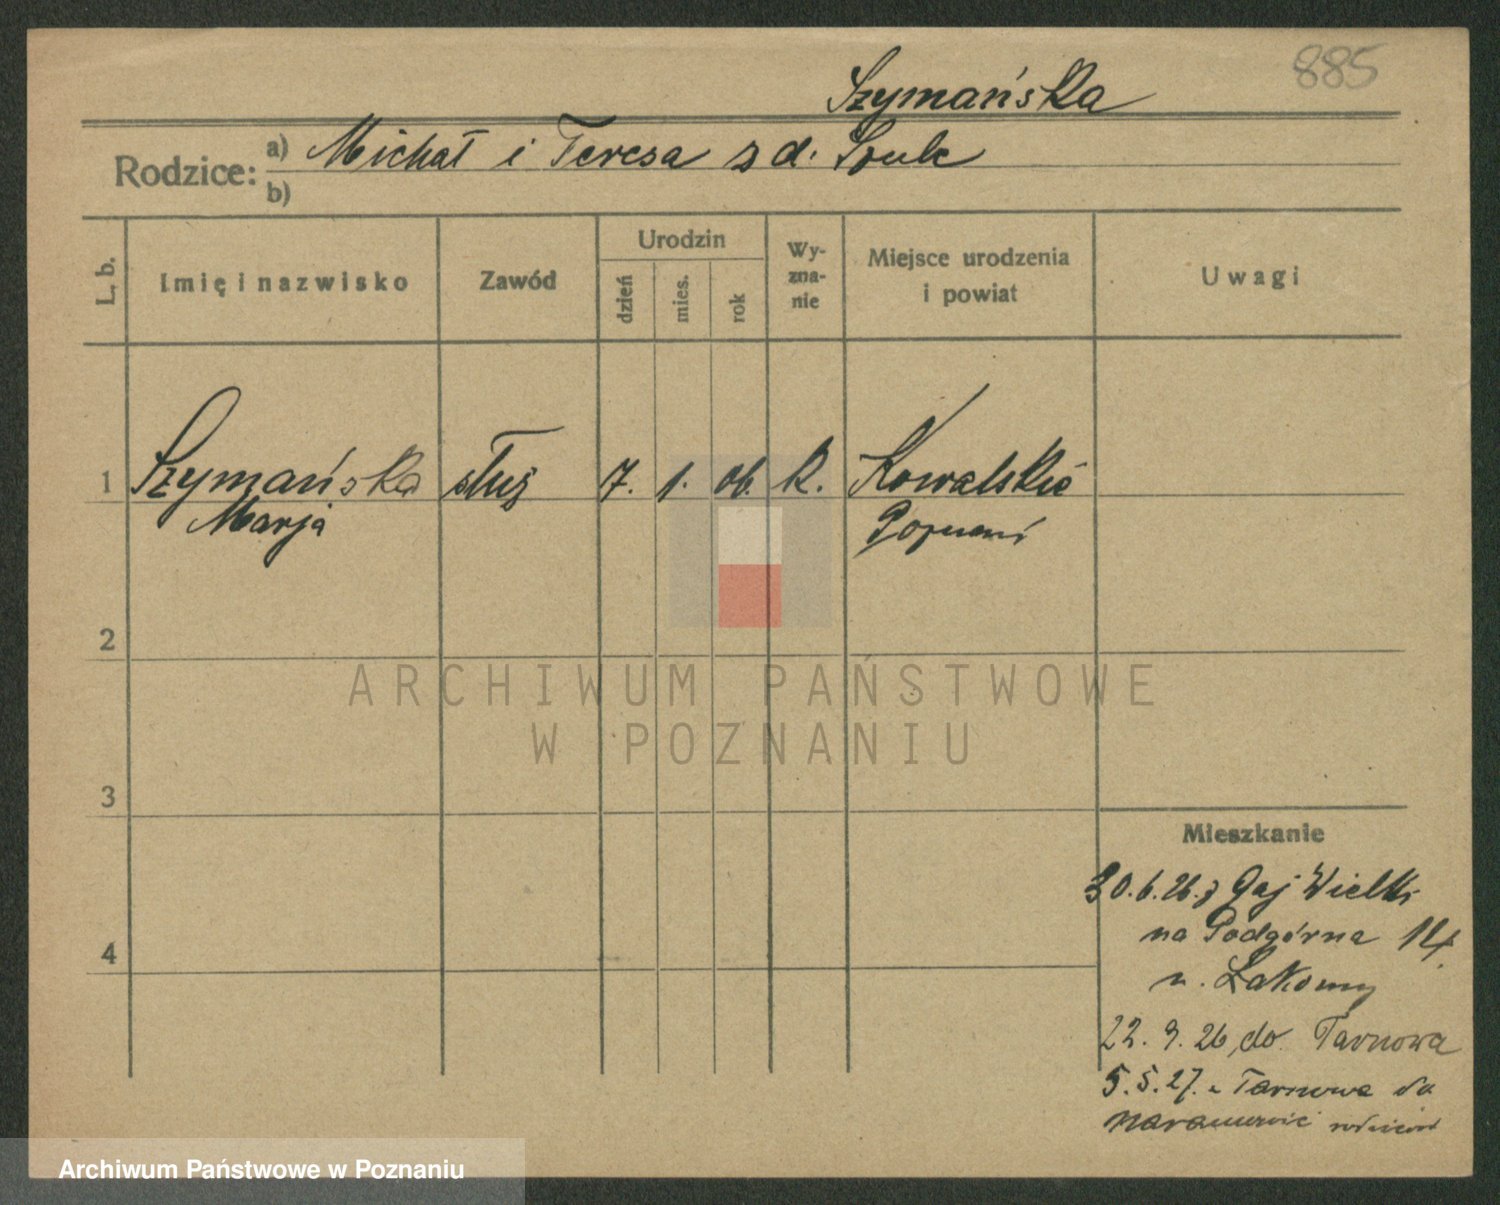 885
Szymańska
Rodzice: a) Michał i Teresa z d. Szulc
b)
L. b.
Imię i nazwisko
Zawód
Urodzin
dzień
mies.
rok
Wy-
zna-
nie
Miejsce urodzenia
i powiat
Uwagi
1 Szymańska służ 7. 1. 06. k. Kowalskie
Marja Poznań
2
3
4
Mieszkanie
30.6.26. z Gaj Wielki
na Podgórna 14.
u. Łakomy
22. 9. 26, do Tarnowa
5.5.27. z Tarnowa do
ARCHIWUM PAŃSTWOWE
W POZNANIU
Archiwum Państwowe w Poznaniu